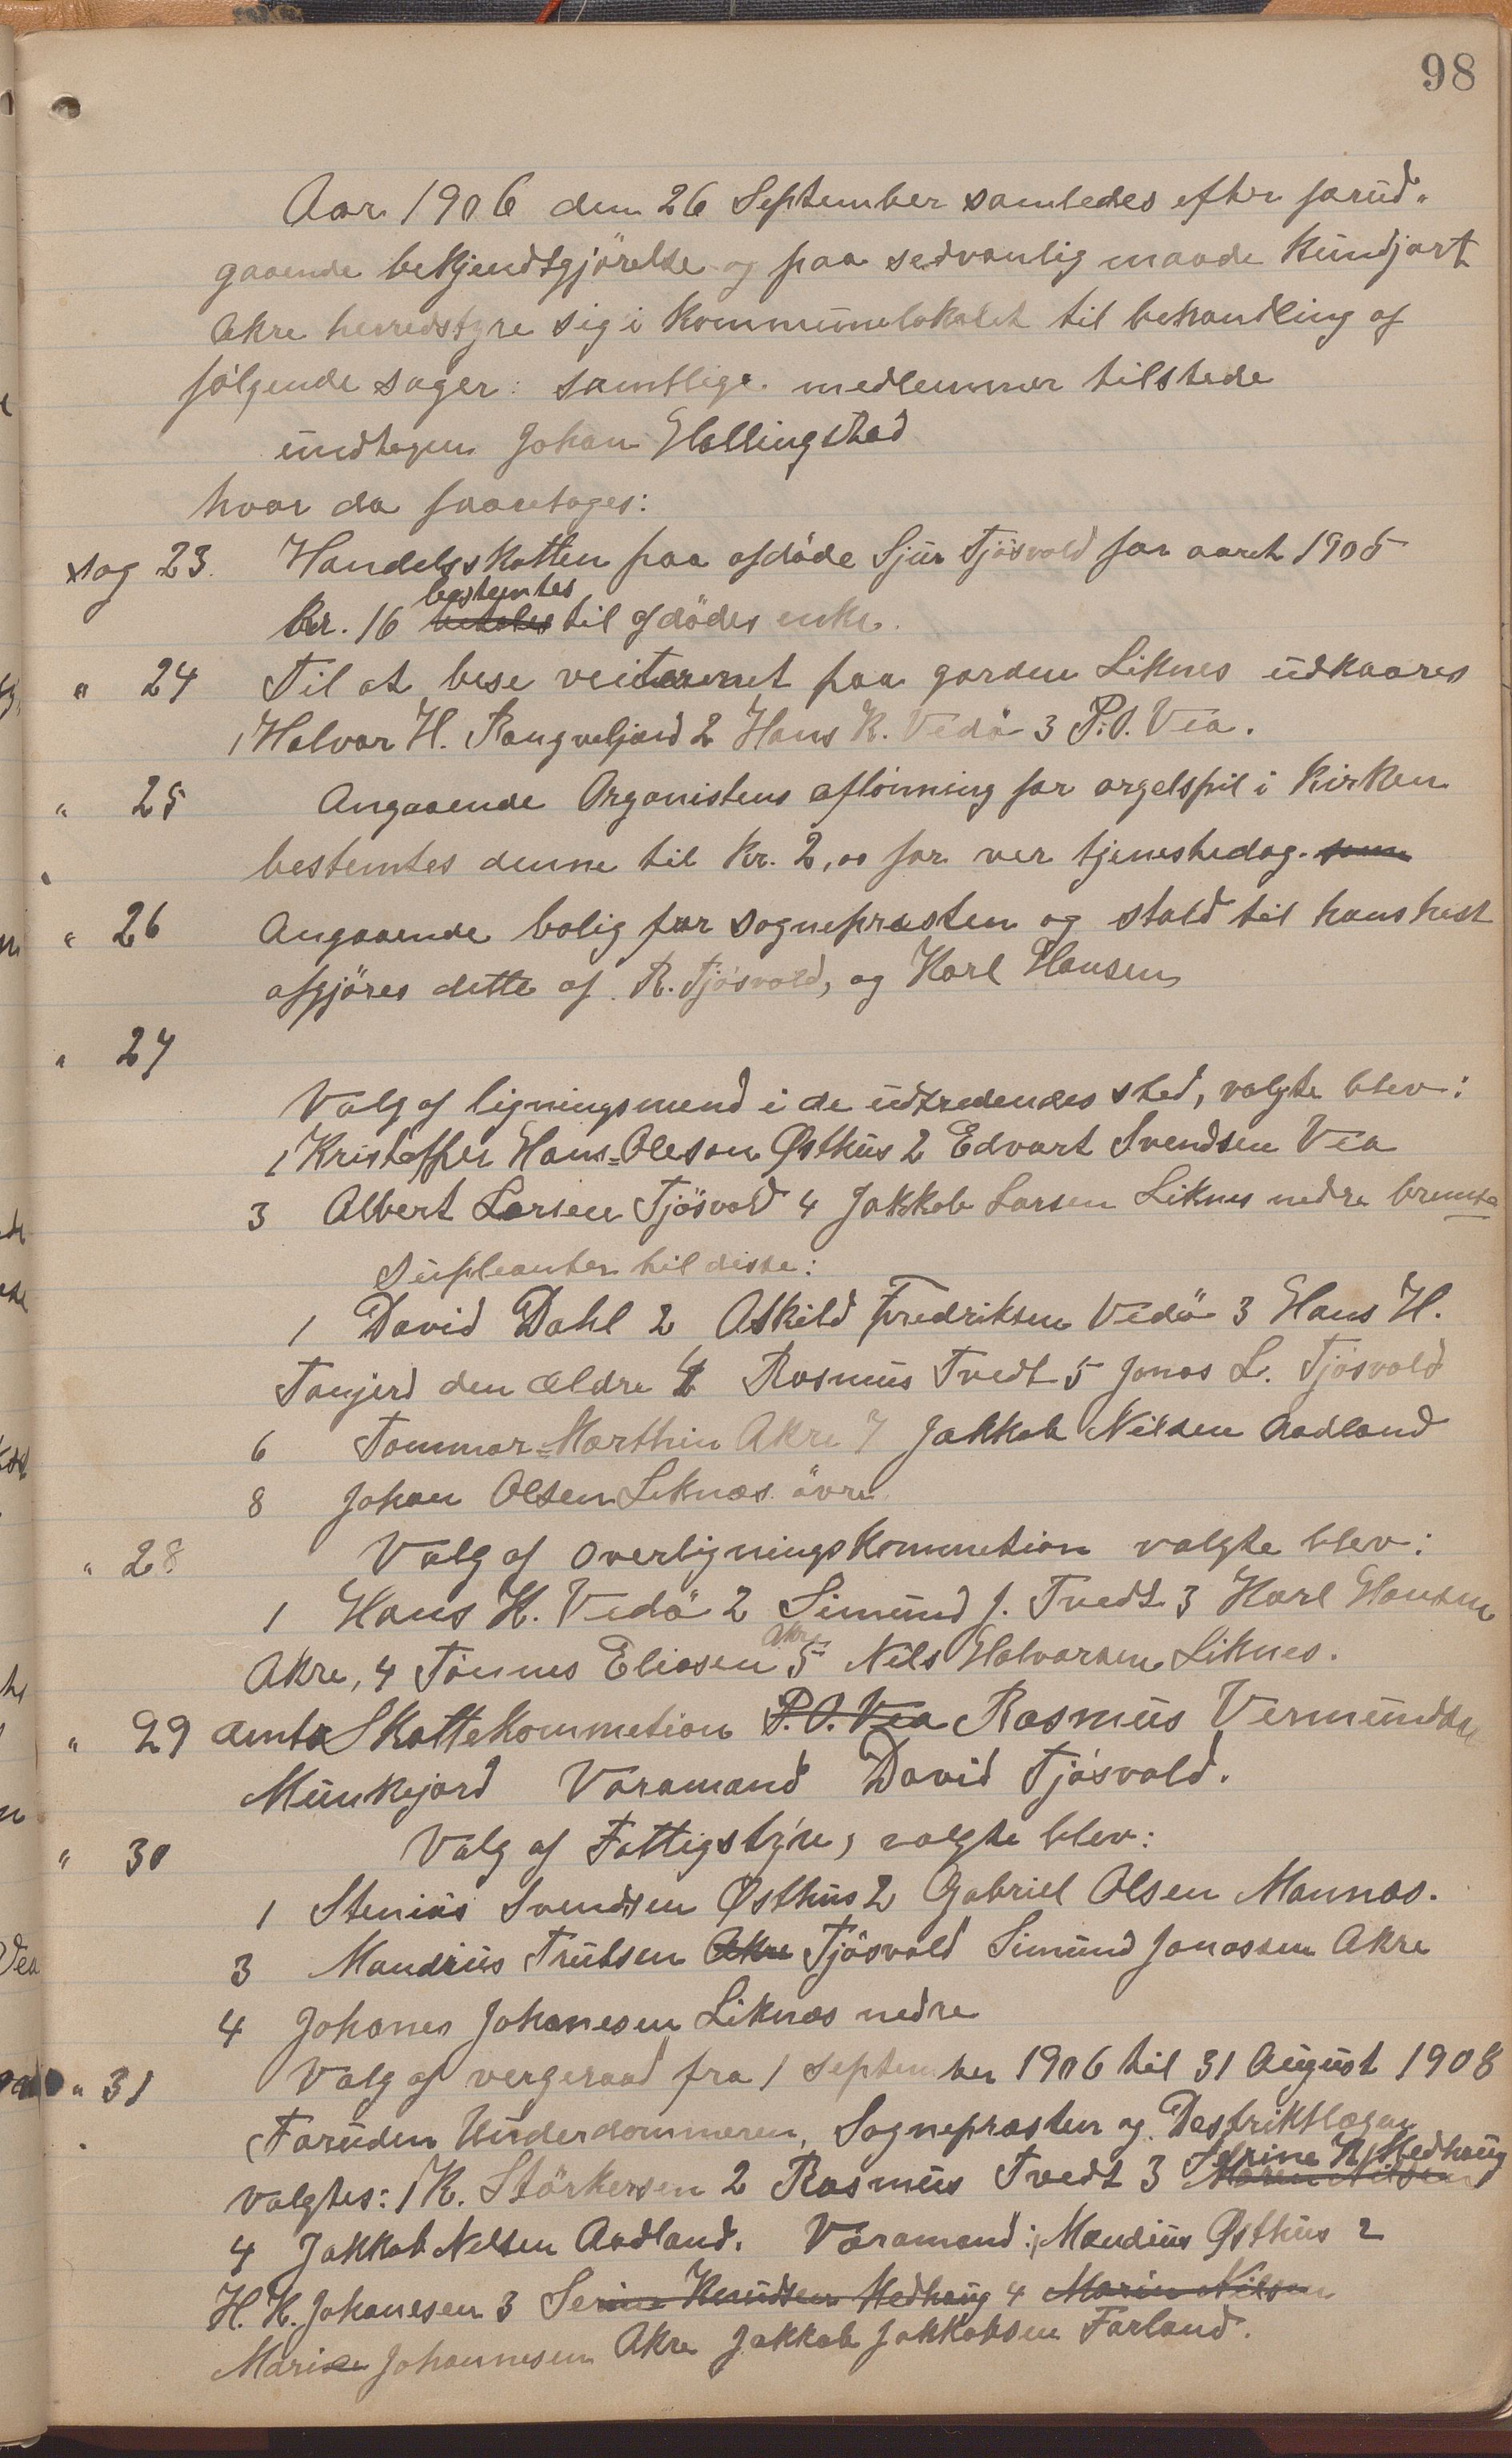 98
Aar 1906 den 26 September samledes efter forud-
gaaende bekjendtgjörelse og paa sedvanlig maade kundjort
Akre herredstyre sig i Kommunelokalet til behandling af
fölgende sager: samtlige medlemmer tilstede
undtagen Johan Hallingstad
hvor da fooretages:
sag 23. Handelsskatten paa afdöde Sjur Tjösvold for aaret 1905
bestemtes
kr. 16 ~~betales~~ til afdödes enke.
" 24 Til at bese veiterrenet paa garden Liknes udkaares
1 Halvor H. Rangveljord 2 Hans K. Vedö 3 P. O. Vea.
" 25 Angaaende Organistens aflönning for orgelspil i Kirken
bestemtes denne til kr. 2,00 for ver tjenestedag. ~~som~~
" 26 Angaaende bolig for sognepræsten og stald til hans hest
afgjöres dette af R. Tjösvold, og Karl Hansen
" 27
Valg af ligningsmend i de udtredendes sted, valgte blev:
1 Kristoffer Hans-Oleson Østhus 2 Edvart Svendsen Vea
3 Albert Larsen Tjösvold 4 Jakkob Larsen Liknes nedre
Supleanter til disse:
1 David Dahl 2 Askild Fredriksen Vedö 3 Hans H.
Tanjerd den ældre 4 Rasmus Tvedt 5 Jonas L. Tjösvold
6 Tommar-Marthin Akre 7 Jakkob Nilsen Aadland
8 Johan Olsen Liknæs övre
" 28 Valg af overligningskommetion valgte blev:
1 Hans K. Vedö 2 Simund J. Tvedt 3 Karl Hansen
Akre
Akre, 4 Tönnes Eliasen 5 Nils Halvorsen Liknes.
" 29 Amts Skattekommetion ~~P. O. Vea~~ Rasmus Vermundsen
Munkejord Varamand David Tjösvold.
" 30 Valg af Fattigstyre, valgte blev:
1 Stenius Svendsen Østhus 2 Gabriel Olsen Mannæs.
3 Mandrius Trulsen ~~Akre~~ Tjösvold Simund Jonassen Akre
4 Johanes Johanesen Liknæs nedre
" 31 Valg af vergeraad fra 1 September 1906 til 31 August 1908
Foruden Underdommeren, Sognepræsten og Destriktlægen
Serine K. Medhaug
valgtes: 1 K. Störkersen 2 Rasmus Tvedt 3 ~~Maren Nilsen~~
4 Jakkob Nelsen Aadland. Varamend: 1 Mandius Østhus 2
H. K. Johanesen 3 ~~Serine Knudsen Medhaug~~ 4 ~~Marin Nilsen~~
Marie Johannesen Akre Jakkob Jakkobsen Farland.